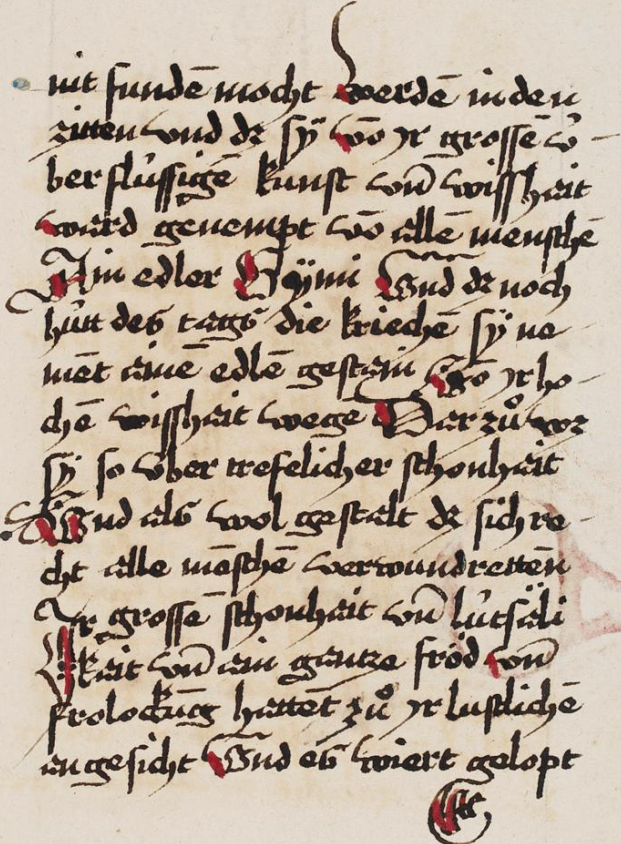 nit fundē mocht werdē in den
zitten vnd dz sÿ vō yr grossē v̈
ber flüssigē kunst vn̄ wisshait
ward genempt vō allē menschē
Ain edler Gÿmi Vnd dz noch
hütt des tags die kriechē sÿ ne
nēt ainē edlē gestain Vō yr ho-
chē wisshait wege Dar zů wz
sÿ so v̈ber trefelicher schonhait
Vnd als wol gestalt dz sich re-
cht alle mēschē verwundrettēn
Ir grossē schonhait vn̄ lütsäli
kait vn̄ ain gantze fröd vn̄
frolockūg hettēt zů yr lustlichē
angesicht Vnd es wiert gelopt